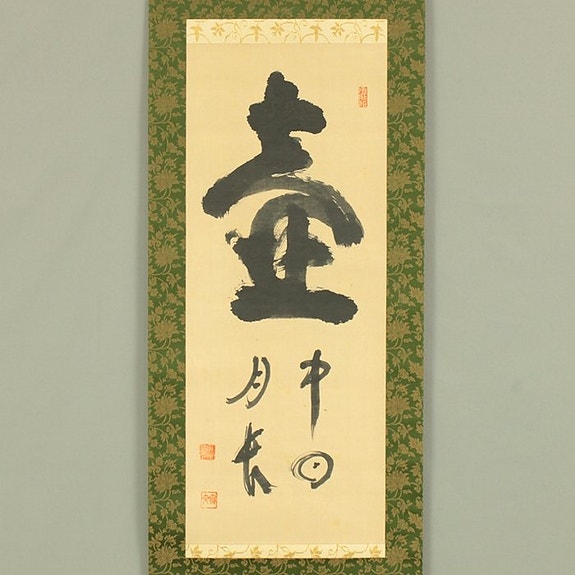 壷
中日
月長